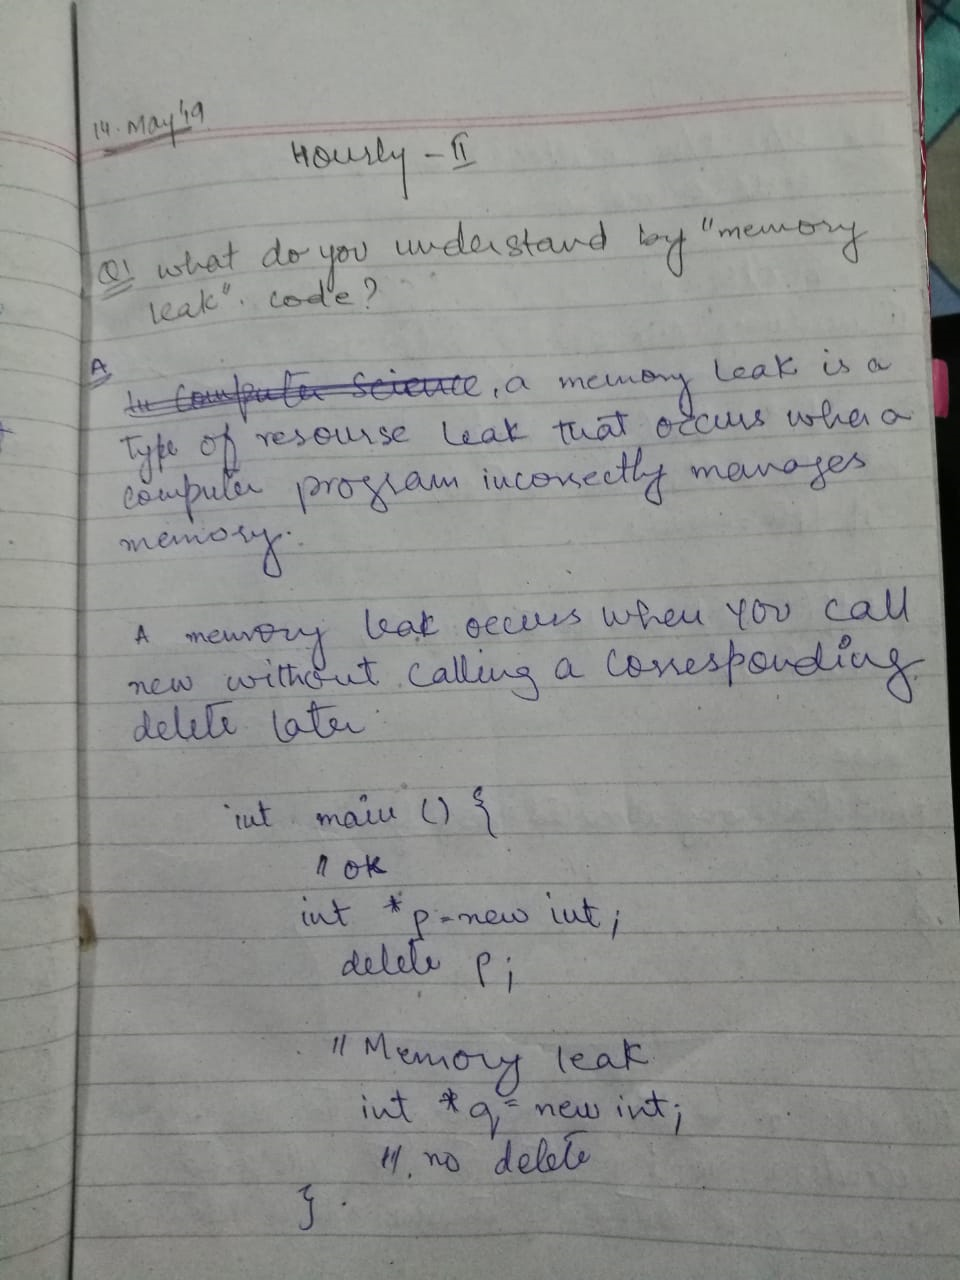 14. May'19
Hourly - II
Q1 what do you understand by "memory
leak". code?
A
In Computer Science, a memory leak is a
type of resourse leak that occurs when a
computer program incorrectly manages
memory.
A memory leak occurs when you call
new without calling a corresponding
delete later
int main () {
// ok
int *p = new int;
delete p;
// Memory leak
int *q = new int;
// no delete
}.